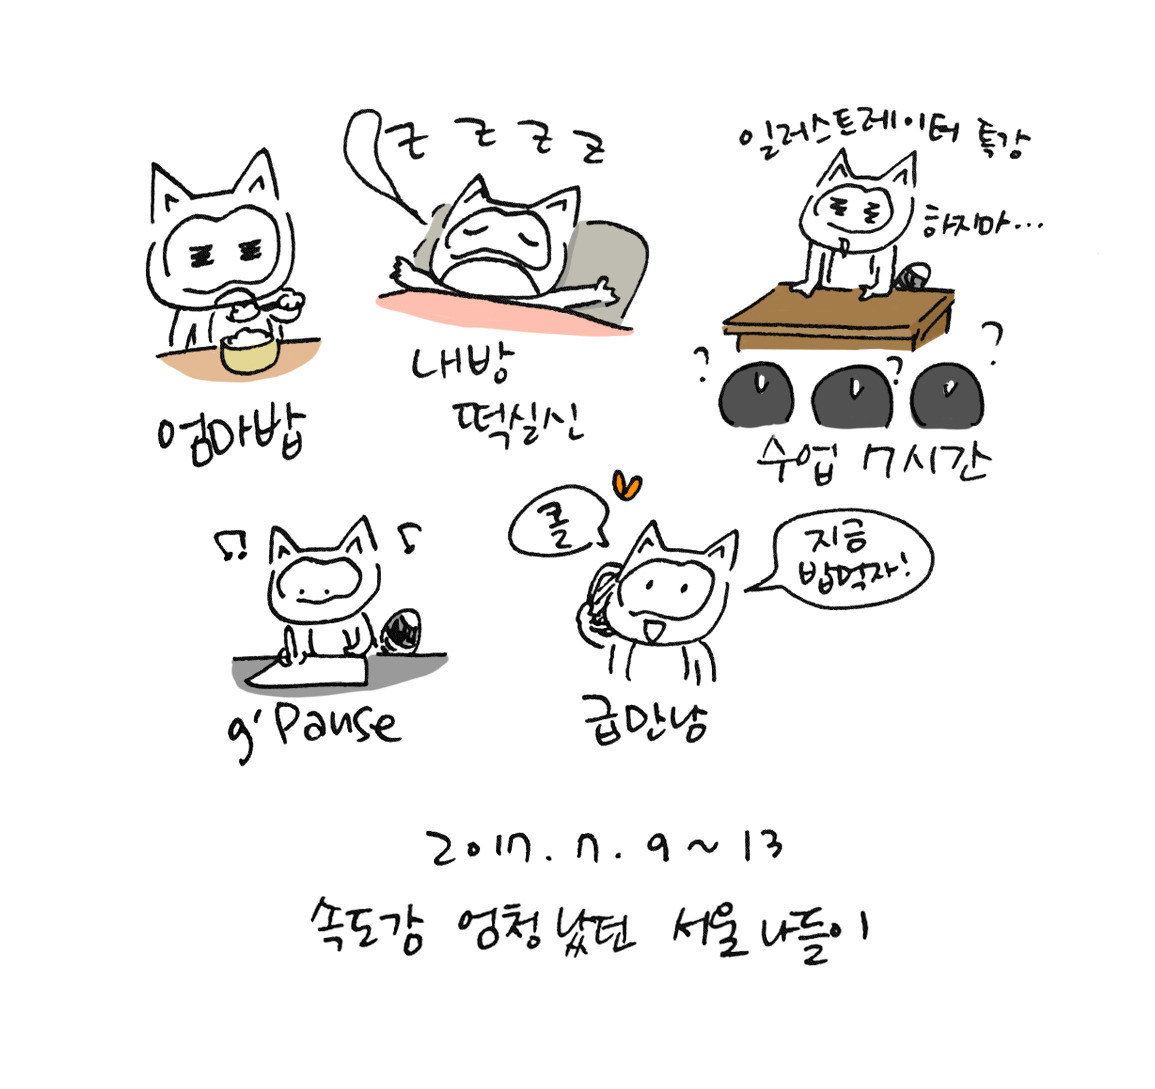 z z z z
엄마밥
내방
떡실신
일러스트레이터 특강
하지마...
? ? ?
수업 7시간
g' Pause
콜
지금
밥먹자!
급만남
2017. 7. 9 ~ 13
속도감 엄청났던 서울나들이